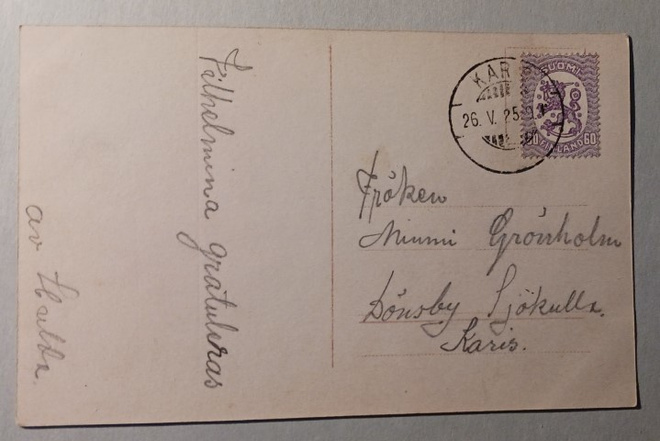 Vilhelmina gratuleras
av Hulda.
KARIS
26.V.25
SUOMI
60 FINLAND 60
Fröken
Mimmi Grönholm
Dönsby Sjökulla.
Karis.